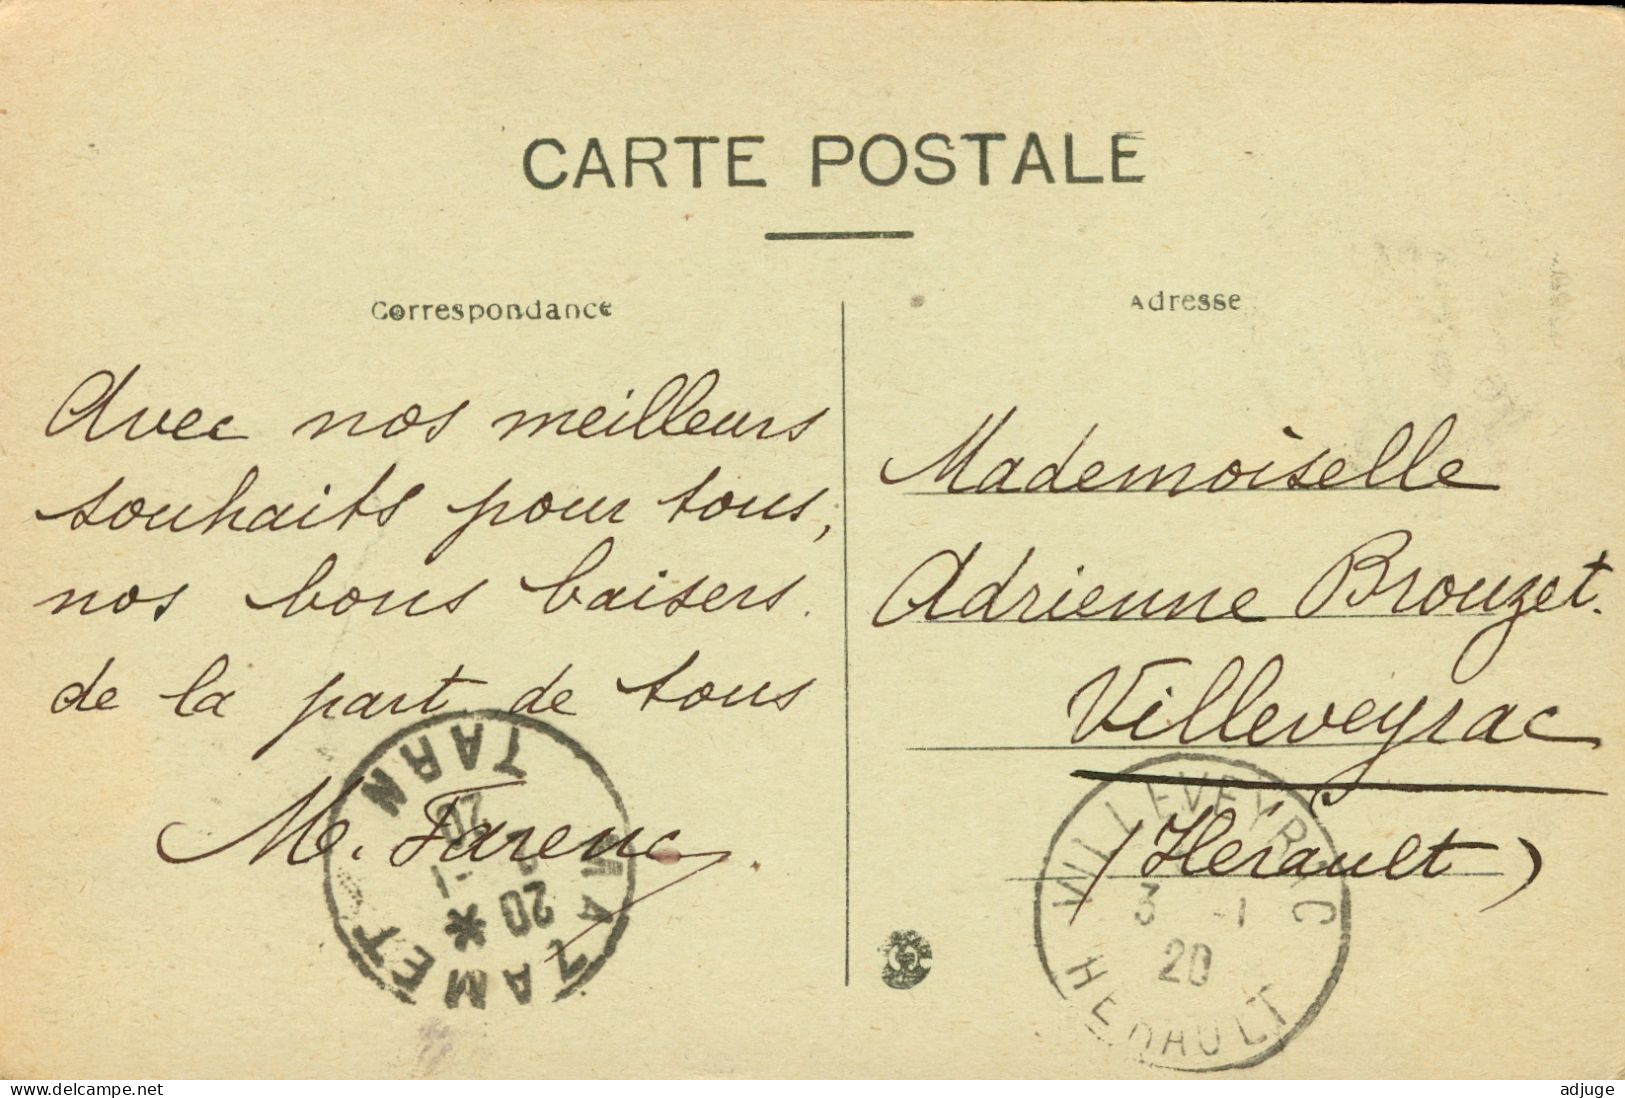 CARTE POSTALE
Correspondance
Avec nos meilleurs
souhaits pour tous,
nos bons baisers.
de la part de tous
M. Farenc.
MAZAMET
TARN
20 *
-1
20
Adresse
Mademoiselle
Adrienne Brouzet.
Villeveyrac
(Hérault)
VILLEVEYRAC
3 -1
20
HERAULT
www.delcampe.net
adjuge